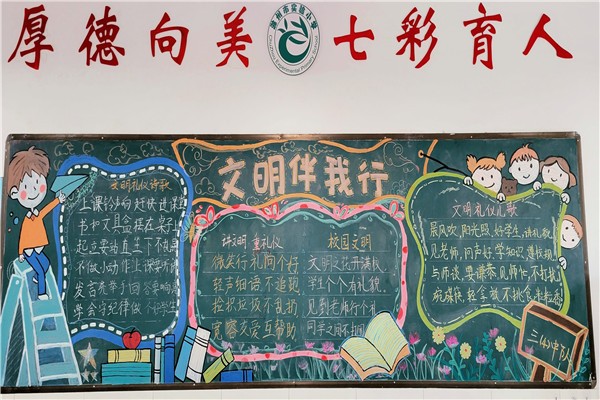 厚德向美 七彩育人
泉州市实验小学
文明伴我行
文明礼仪诗歌
上课铃响赶快进课
书和文具盒摆在桌子
起立要站直坐下不
不做小动作上课要
发言先举手回答要响
学会守纪律做
讲文明 重礼仪
微笑行礼问个好
轻声细语不追跑
捡拾垃圾不乱扔
宽容交友互帮助
校园文明
文明之花开满校
学生个个有礼貌
见到老师行个礼
同学之间不打闹
文明礼仪儿歌
晨风吹,阳光照,好学生,讲礼貌
见老师,问声好,学知识,遵校规
与师谈,要谦恭,见师忙,不打扰
放桌椅,轻拿放,不挑食
三(4)中队